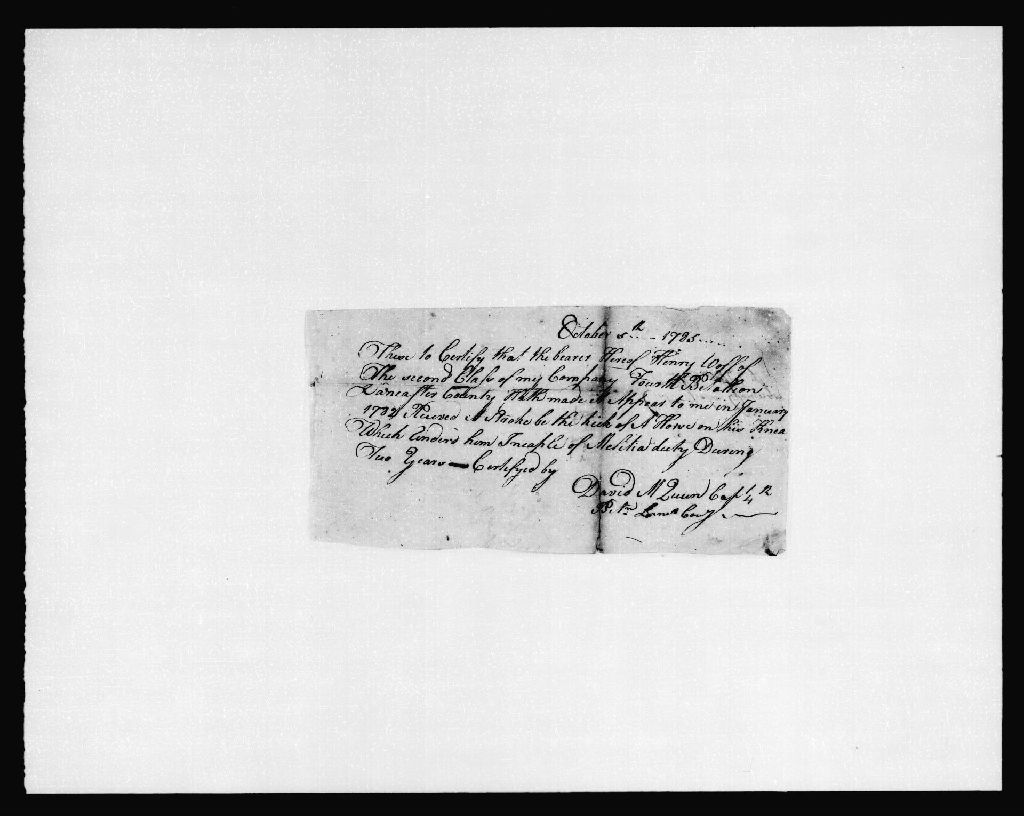 October 5th 1785
These to Certify that the bearer Hereof Henry Wolf of
The second Class of my Company Fourth Batallion
Lancaster County Hath made it Appear to me in January
1782 Received A Stroke be the kick of A Horse on his Knea
Which Renders him Incaple of Melitia duty During
Two Years — Certifyed by
David McQueen Capt 4th
Btn County